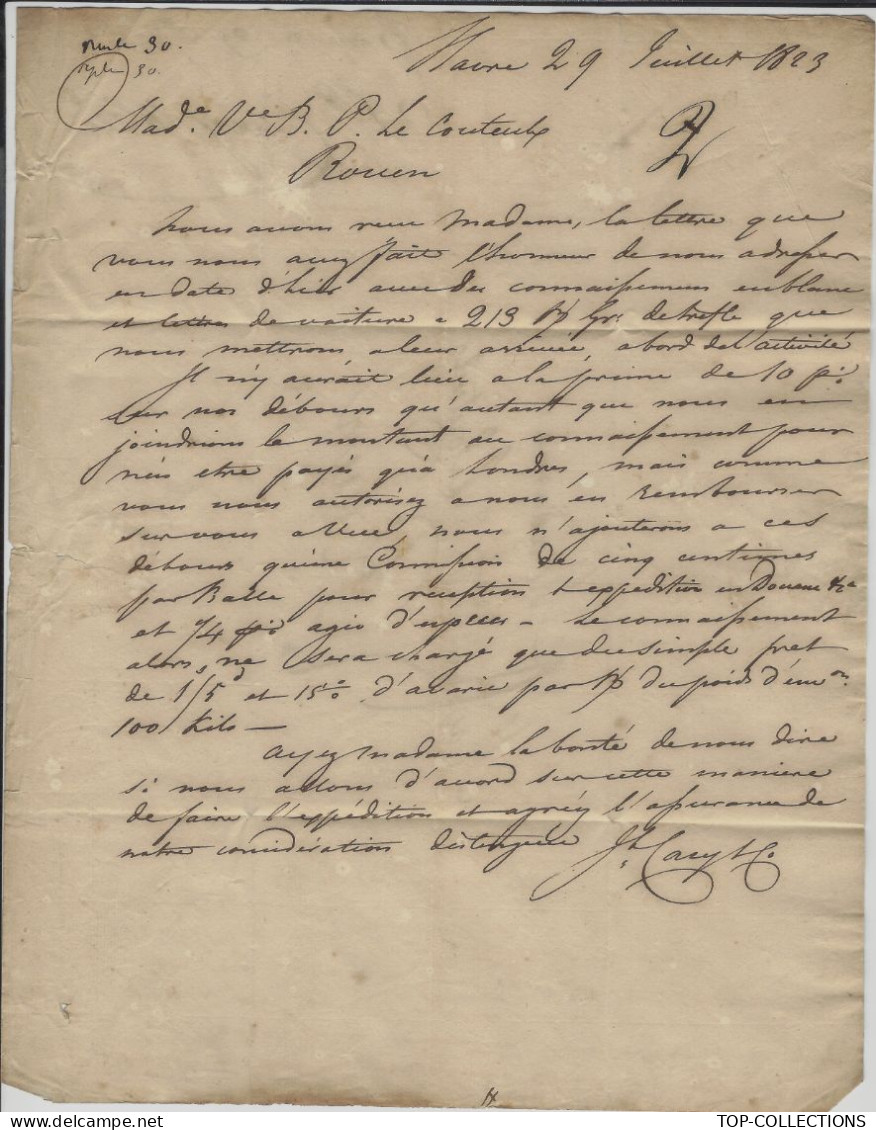 30.
30.
Havre 29 Juillet 1823
Made. Ve B. P. Le Couteulx
Rouen
Nous avons reçu Madame, la lettre que
vous nous avez fait l'honneur de nous adresser
en date d'hier avec des connaissemens en blanc
et lettres de voiture a 213 Bs Gr. de trefle que
nous mettrons, a leur arrivée, a bord de l'activité
Il n'y aurait lieu a la prime de 10 p.
sur nos débours qu'autant que nous en
joindrions le montant au connaissement pour
n'en etre payés qu'a Londres, mais comme
vous nous autorisez a nous en rembourser
sur vous a vue nous n'ajouterons a ces
débours qu'une Commission de cinq centimes
par Balle pour reception & expedition en Douane &ca
et 1/4 agio d'especes - Le connaissement
alors, ne sera chargé que du simple fret
de 1/5d et 15% d'avarie par B du poids d'envon.
100 Kils —
Ayez Madame la bonté de nous dire
si nous allons d'accord sur cette maniere
de faire l'expédition et agréez l'assurance de
notre considération distinguée
TOP-COLLECTIONS